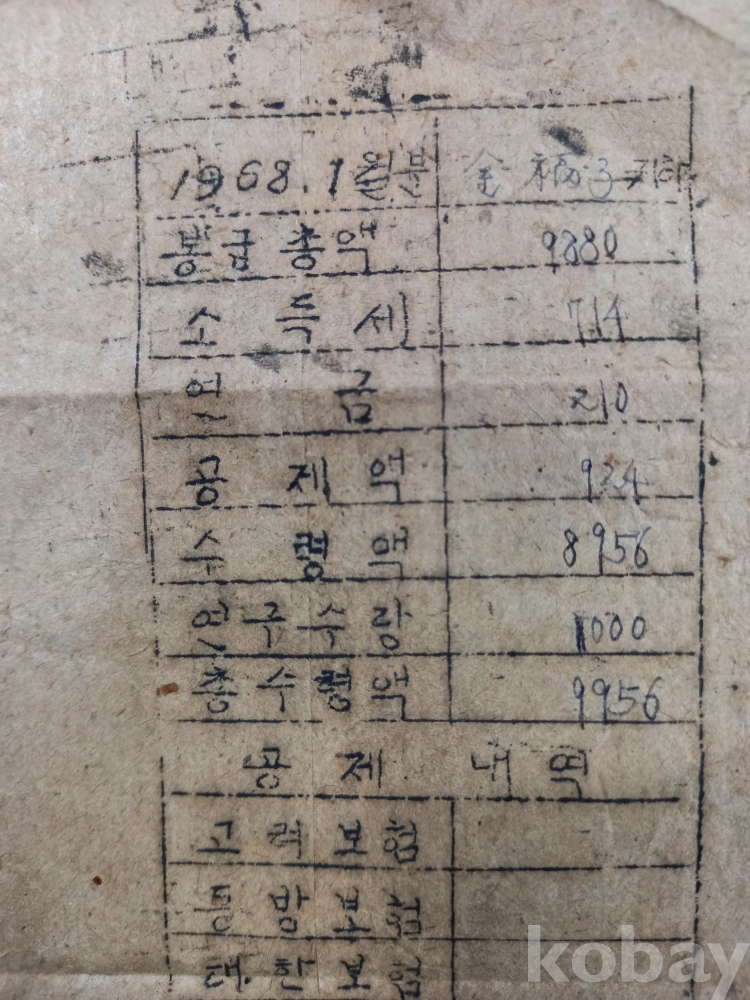 1968.1월분 金福子 귀하
봉급총액 9880
소득세 714
연금 210
공제액 924
수령액 8956
연구수랑 1000
총수령액 9956
공제내역
고려보험
동방보험
대한보험
kobay